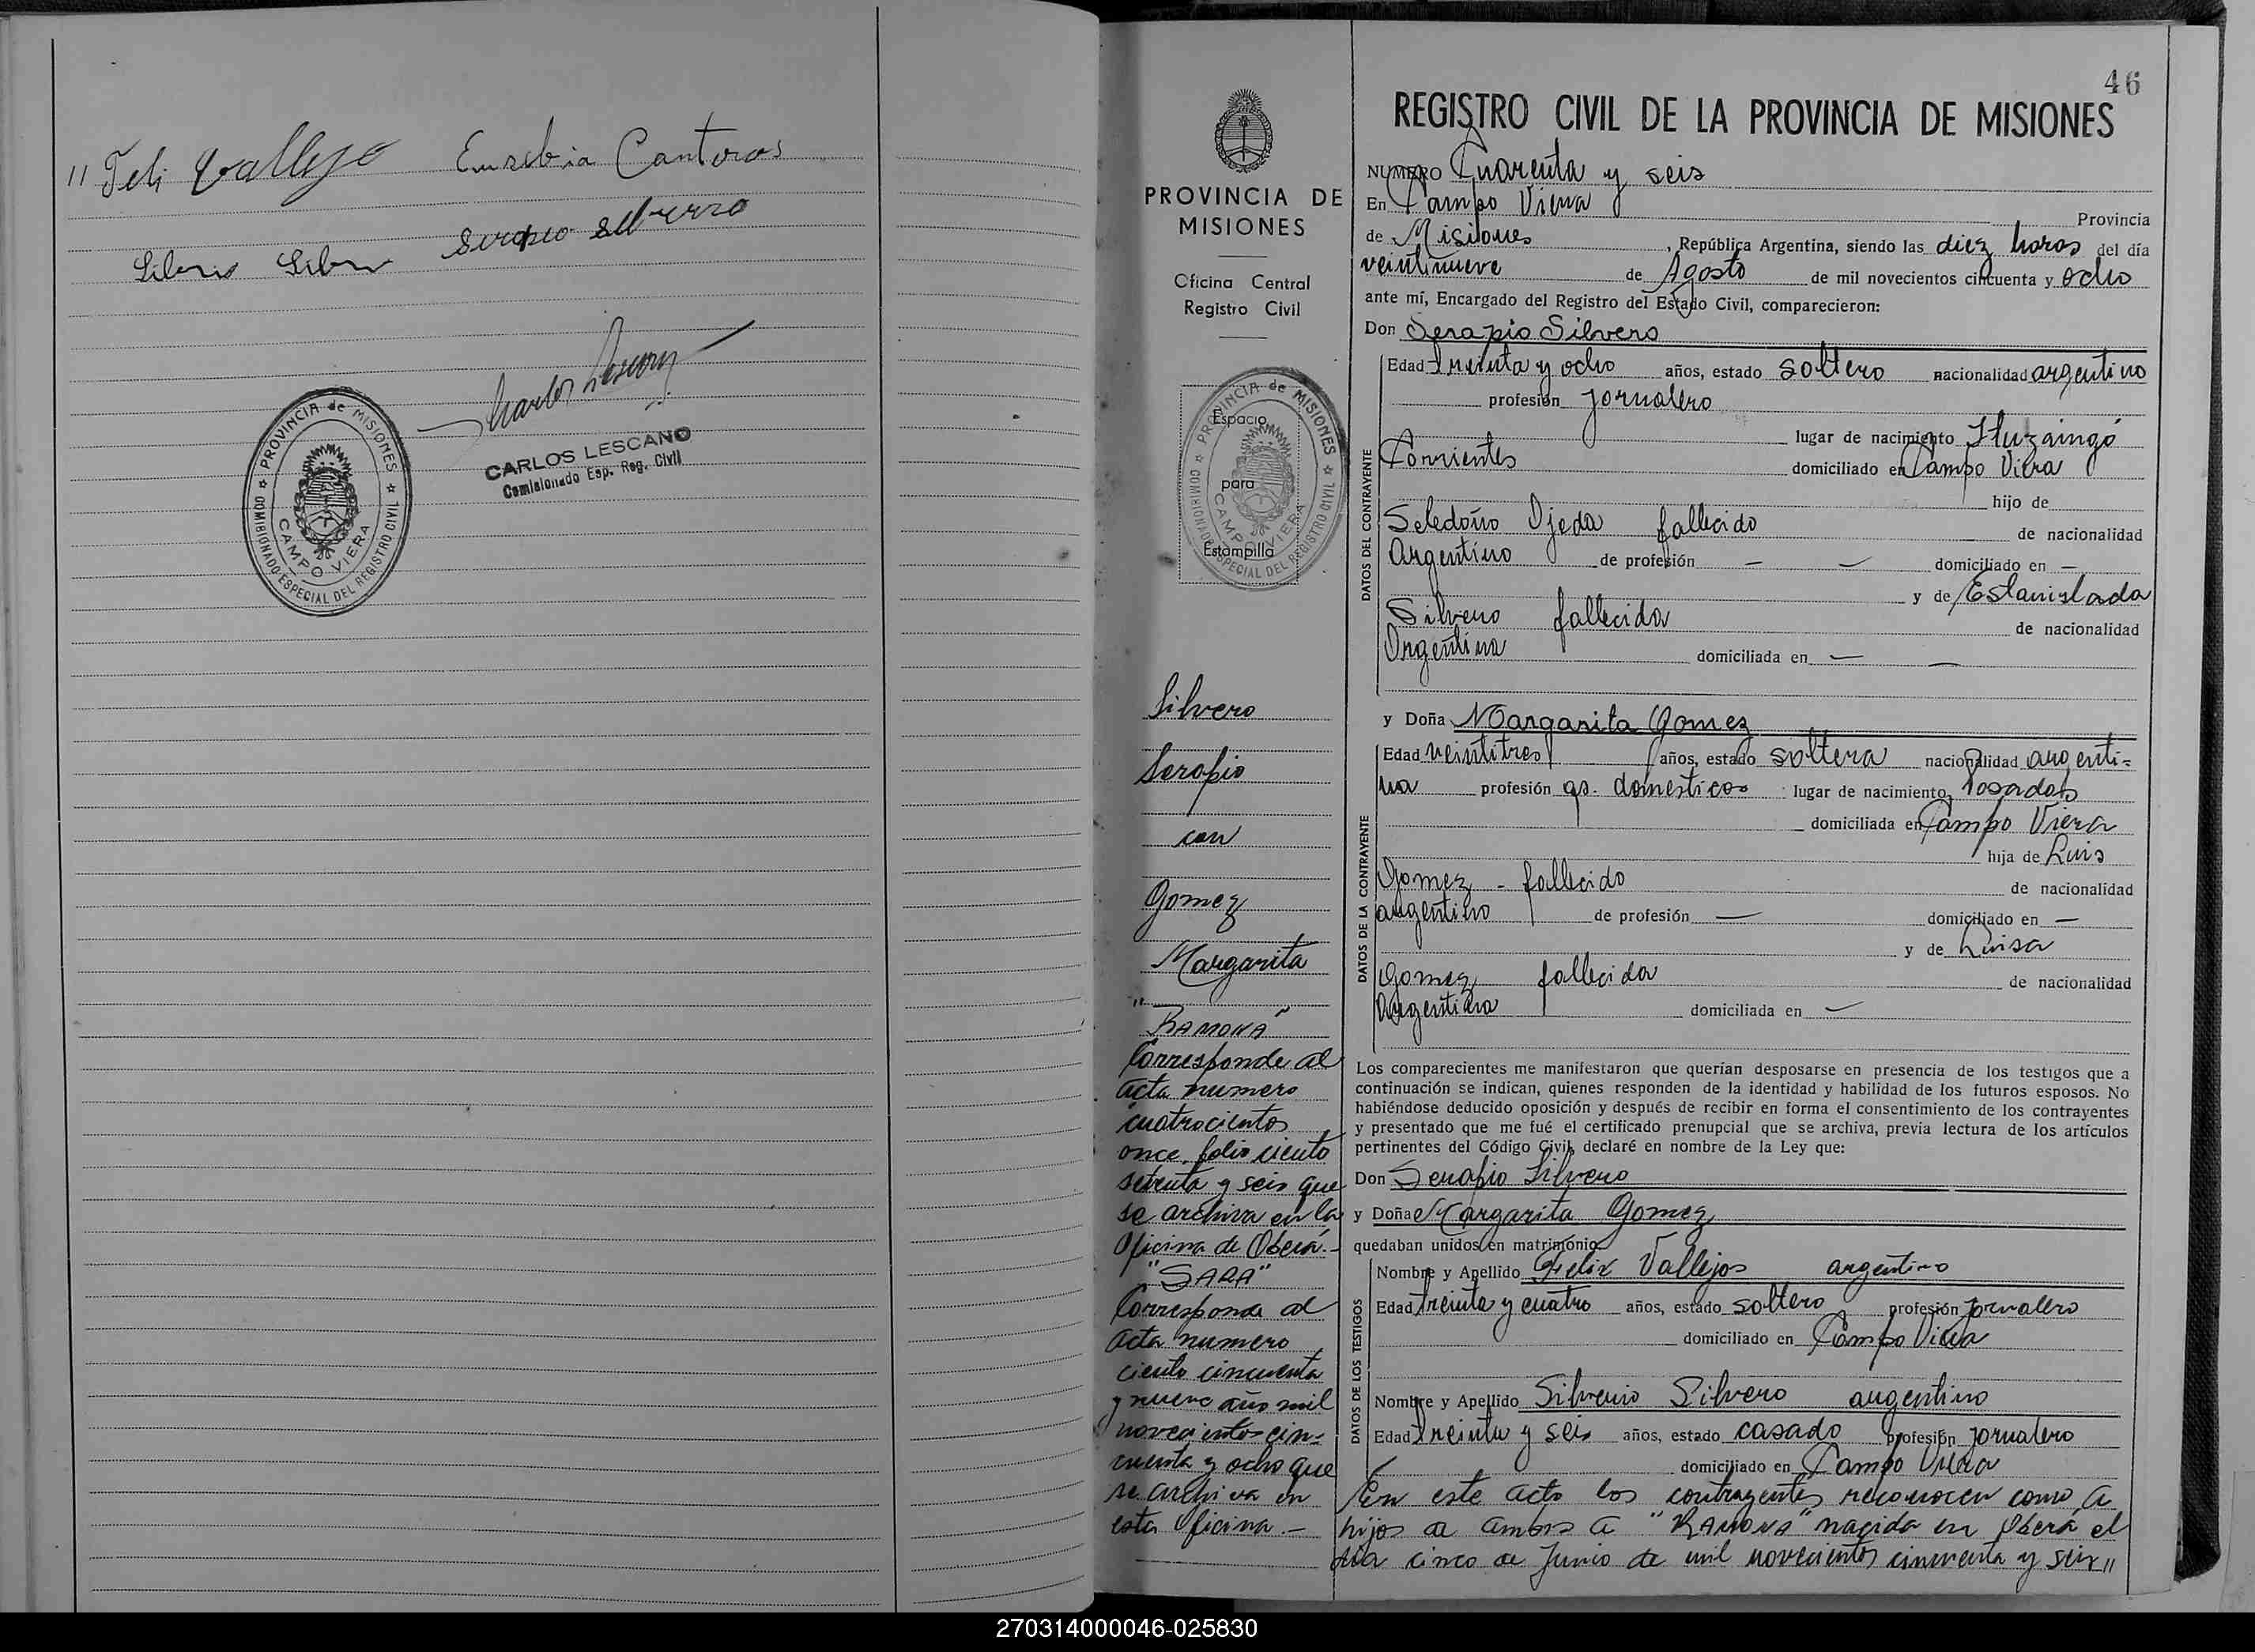 " Feli Vallejo Eusebia Canteros
Silverio Silvero Serapio Silvero
CARLOS LESCANO
Comisionado Esp. Reg. Civil
PROVINCIA de MISIONES
COMISIONADO ESPECIAL DEL REGISTRO CIVIL
CAMPO VIERA
PROVINCIA DE
MISIONES
Oficina Central
Registro Civil
PROVINCIA de MISIONES
COMISIONADO ESPECIAL DEL REGISTRO CIVIL
CAMPO VIERA
Espacio
para
Estampilla
Silvero
Serapio
con
Gomez
Margarita
"RAMONA"
Corresponde al
acta numero
cuatrocientos
once, folio ciento
setenta y seis que
se archiva en la
Oficina de Oberá.-
"SARA"
Corresponde al
acta numero
ciento cincuenta
y nueve año mil
novecientos cin-
cuenta y ocho que
se archiva en
esta Oficina.-
46
REGISTRO CIVIL DE LA PROVINCIA DE MISIONES
NUMERO Cuarenta y seis
En Campo Viera Provincia
de Misiones, República Argentina, siendo las diez horas del día
veintinueve de Agosto de mil novecientos cincuenta y ocho
ante mí, Encargado del Registro del Estado Civil, comparecieron:
Don Serapio Silvero
DATOS DEL CONTRAYENTE
Edad treinta y ocho años, estado soltero nacionalidad argentino
profesión jornalero
lugar de nacimiento Ituzaingó
Corrientes domiciliado en Campo Viera
hijo de
Seledoño Ojeda fallecido de nacionalidad
Argentino de profesión — — domiciliado en —
y de Estanislada
Silvero fallecida de nacionalidad
Argentina domiciliada en — —
y Doña Margarita Gomez
DATOS DE LA CONTRAYENTE
Edad veintitres años, estado soltera nacionalidad argenti=
na profesión qs. domesticos lugar de nacimiento Posadas
domiciliada en Campo Viera
hija de Luis
Gomez - fallecido de nacionalidad
argentino de profesión — domiciliado en —
y de Luisa
Gomez fallecida de nacionalidad
Argentina domiciliada en —
Los comparecientes me manifestaron que querían desposarse en presencia de los testigos que a
continuación se indican, quienes responden de la identidad y habilidad de los futuros esposos. No
habiéndose deducido oposición y después de recibir en forma el consentimiento de los contrayentes
y presentado que me fué el certificado prenupcial que se archiva, previa lectura de los artículos
pertinentes del Código Civil, declaré en nombre de la Ley que:
Don Serapio Silvero
y Doña Margarita Gomez
quedaban unidos en matrimonio
DATOS DE LOS TESTIGOS
Nombre y Apellido Felix Vallejos argentino
Edad treinta y cuatro años, estado soltero profesión jornalero
domiciliado en Campo Viera
Nombre y Apellido Silverio Silvero argentino
Edad treinta y seis años, estado casado profesión jornalero
domiciliado en Campo Viera
En este acto los contrayentes reconocen como a
hijos de ambos a "RAMONA" nacida en Oberá el
día cinco de Junio de mil novecientos cincuenta y seis "
270314000046-025830